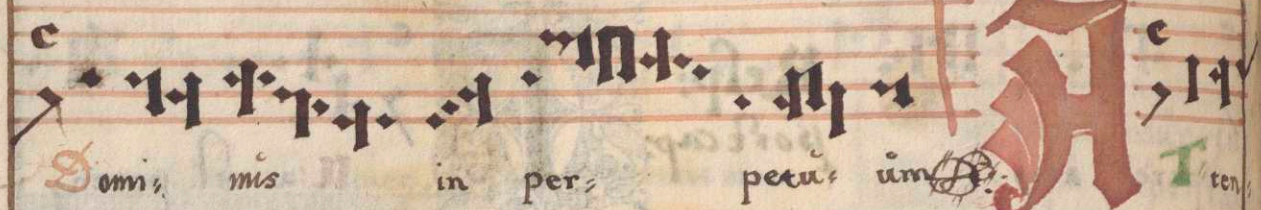 Domi- nus in per- petu- um A Tten-